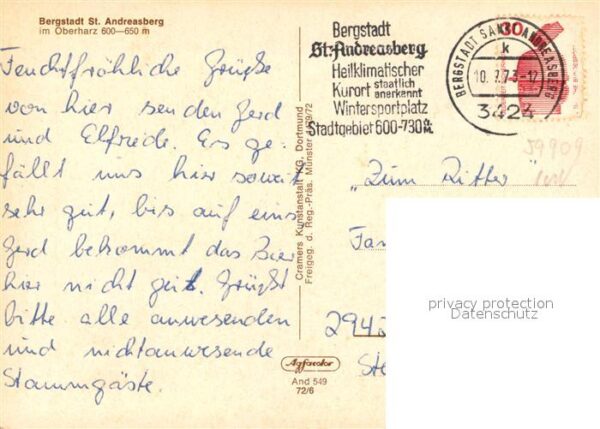 Bergstadt St. Andreasberg
im Oberharz 600—650 m
Feuchtfröhliche Grüße
von hier senden Gerd
und Elfriede. Es ge-
fällt uns hier soweit
sehr gut, bis auf eins
Gerd bekommt das Bier
hier nicht gut. Grüßt
bitte alle anwesenden
und nichtanwesende
Stammgäste.
Cramers Kunstanstalt KG, Dortmund
Freigeg. d. Reg.-Präs. Münster
Agfacolor
And 549
72/6
Bergstadt
St. Andreasberg
Heilklimatischer
Kurort staatlich anerkannt
Wintersportplatz
Stadtgebiet 600-730 m
BERGSTADT SANKT ANDREASBERG
k
10.7.73-12
3424
30
59909
„Zum Ritter"
Fam
294
privacy protection
Datenschutz